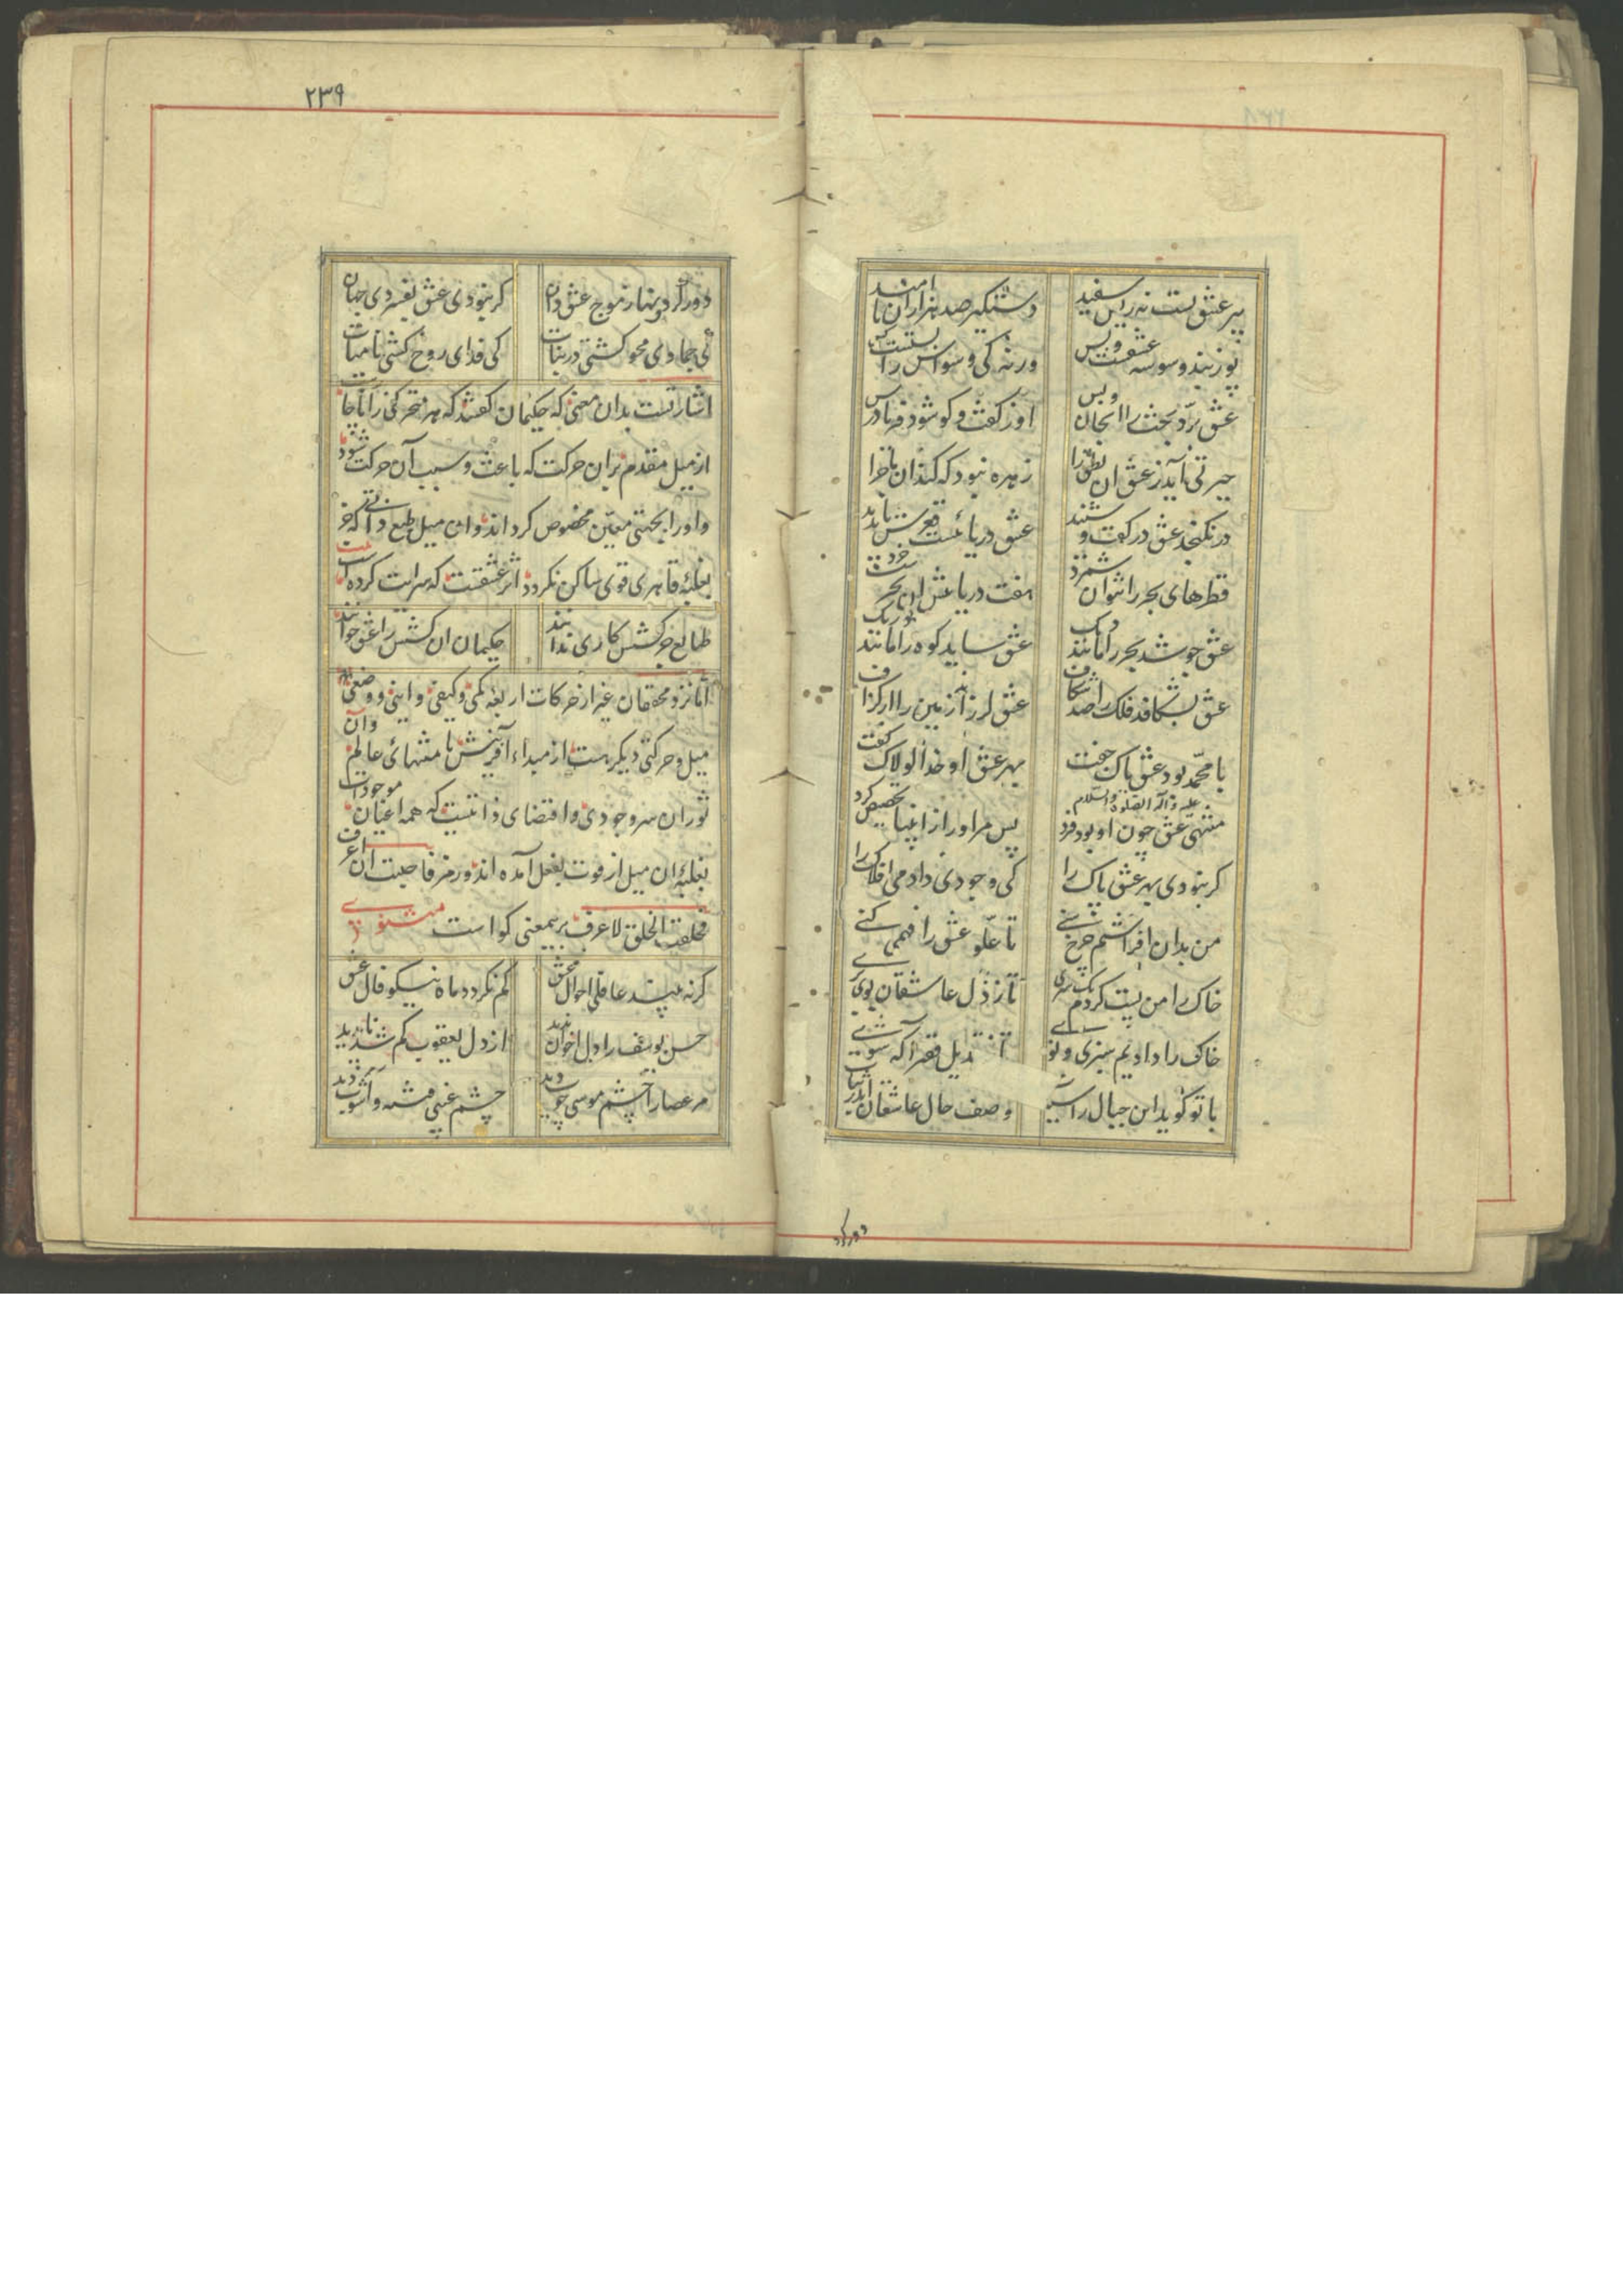 پیر عشق تست نه ریش سفید دستگیر صد هزاران نا امید
پوزبند وسوسه عشقست و بس ورنه کی وسواس را بستست کس
عشق برّد بحث را ای جان و بس او ز گفت و گو شود فریادرس
حیرتی آید ز عشق آن نطق را زهره نبود که کند آن ماجرا
در نکنجد عشق در گفت و شنید عشق دریائیست قعرش ناپدید
قطرهای بحر را نتوان شمرد هفت دریا پیش آن بحرست خرد
عشق جوشد بحر را مانند دیک عشق ساید کوه را مانند ریک
عشق بشکافد فلک را صد شکاف عشق لرزاند زمین را از گزاف
با محمّد بود عشق پاک جفت بهر عشق او خدا لولاک گفت
علیه و آله الصلوة والسّلام
منتهی عشق چون او بود فرد پس مر او را ز انبیا تخصیص کرد
کر نبودی بهر عشق پاک را کی وجودی دادمی افلاک را
من بدان افراشتم چرخ سنی تا علّو عشق را فهمی کنی
خاک را من پست کردم یک سری تا ز ذل عاشقان بویی بری
خاک را دادیم سبزی و نوی تا ز تبدیل فقیر آکه شوی
با تو گوید این جبال راسیات وصف حال عاشقان اندر ثبات
دور کرد
۲۳۹
دور کردونها ز موج عشق دان کر نبودی عشق بفسردی جهان
کی جمادی محو کشتی در نبات کی فدای روح کشتی نامیات
اشارتست بدان معنی که حکیمان کفتند که هر متحرکی را ناچار
از میل مقدم بر آن حرکت که باعث و سبب آن حرکت شود
و او را بجهتی معیّن مخصوص کرداند و این میل طبع ذاتی که جز
بغلبهٔ قاهری قوی ساکن نکردد اثر عشقست که سرایت کرده است
طبایع جز کشش کاری ندانند حکیمان این کشش را عشق خوانند
امّا نزد محققان غیر از حرکات اربعه کمّی و کیفی و اینی و وضعی
میل و حرکتی دیکر هست از مبداء آفرینش تا منتهای عالم و آن
ثوران سر وجودی و اقتضای ذاتیست که همه اعیان موجودات
بغلبهٔ آن میل از قوت بفعل آمده اند و رمز فاحببت ان اعرف
فخلقت الخلق لاعرف برین معنی کواست مثنوی
کر نه بیند عاقلی احوال عشق کم نکردد ماه نیکو فال عشق
حسن یوسف را دل اخوان ندید از دل یعقوب کم شد ناپدید
مر عصا را چشم موسی چوب دید چشم غیبی فتنه و آشوب دید